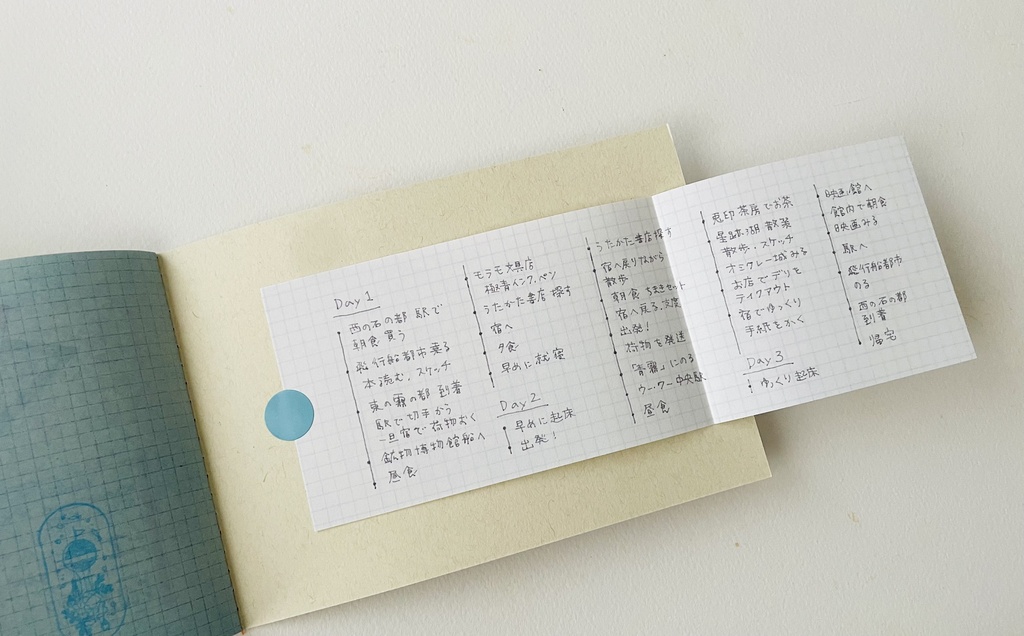 Day 1
西の石の都 駅で
朝食買う
飛行船都市乗る
本読む、スケッチ
東の霧の都 到着
駅で切手かう
一旦宿で荷物おく
鉱物博物館船へ
昼食
モラモ文具店
極青インク、ペン
うたかた書店 探す
宿へ
夕食
早めに就寝
Day 2
早めに起床
出発！
うたかた書店探す
宿へ戻りながら
散歩
朝食 ちまきセット
宿へ戻る、
出発！
荷物を発送
「青霧」にのる
ウー・ウー中央駅
昼食
茶房でお茶
湖 散策
散歩、スケッチ
オミクレー城みる
お店でデリを
テイクアウト
宿でゆっくり
手紙をかく
Day 3
ゆっくり起床
映画館へ
館内で朝食
映画みる
駅へ
飛行船都市
のる
西の石の都
到着
帰宅